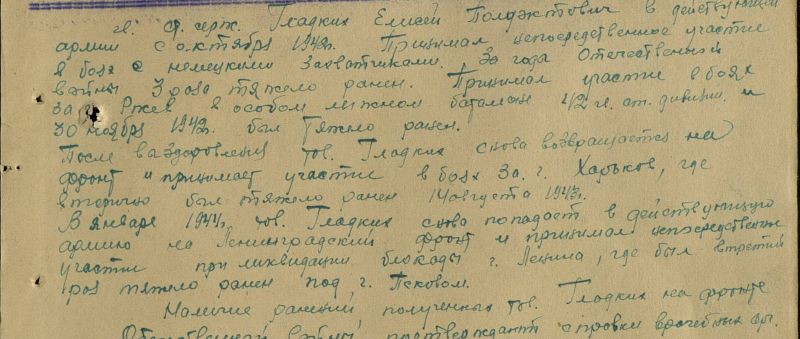 гв. ст. серж. Гладких Елисей Полуэктович в действующей
армии с октября 1942г. Принимал непосредственное участие
в боях с немецкими захватчиками. За года Отечественной
войны 3 раза тяжело ранен. Принимал участие в боях
за г. Ржев в особом лыжном батальоне 42 гв. ст. дивизии и
30 ноября 1942г. был тяжело ранен.
После выздоровления тов. Гладких снова возвращается на
фронт и принимает участие в боях за г. Харьков, где
вторично был тяжело ранен 14 августа 1943г.
В январе 1944г. тов. Гладких снова попадает в действующую
армию на Ленинградский фронт и принимал непосредственное
участие при ликвидации блокады г. Ленина, где был в третий
раз тяжело ранен под г. Псковом.
Наличие ранений полученных тов. Гладких на фронте
Отечественной войны подтверждают справки врачебных